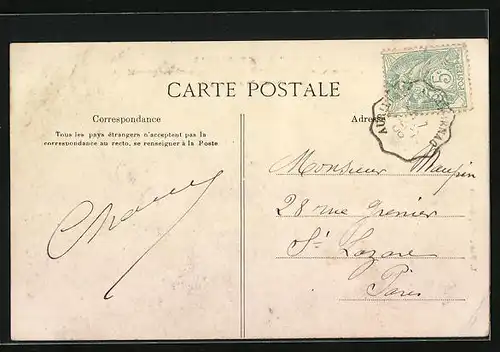 CARTE POSTALE
Correspondance
Tous les pays étrangers n'acceptent pas la
correspondance au recto, se renseigner à la Poste
Adre
5
Monsieur Maupin
28 rue Grenier
St Lazare
Paris